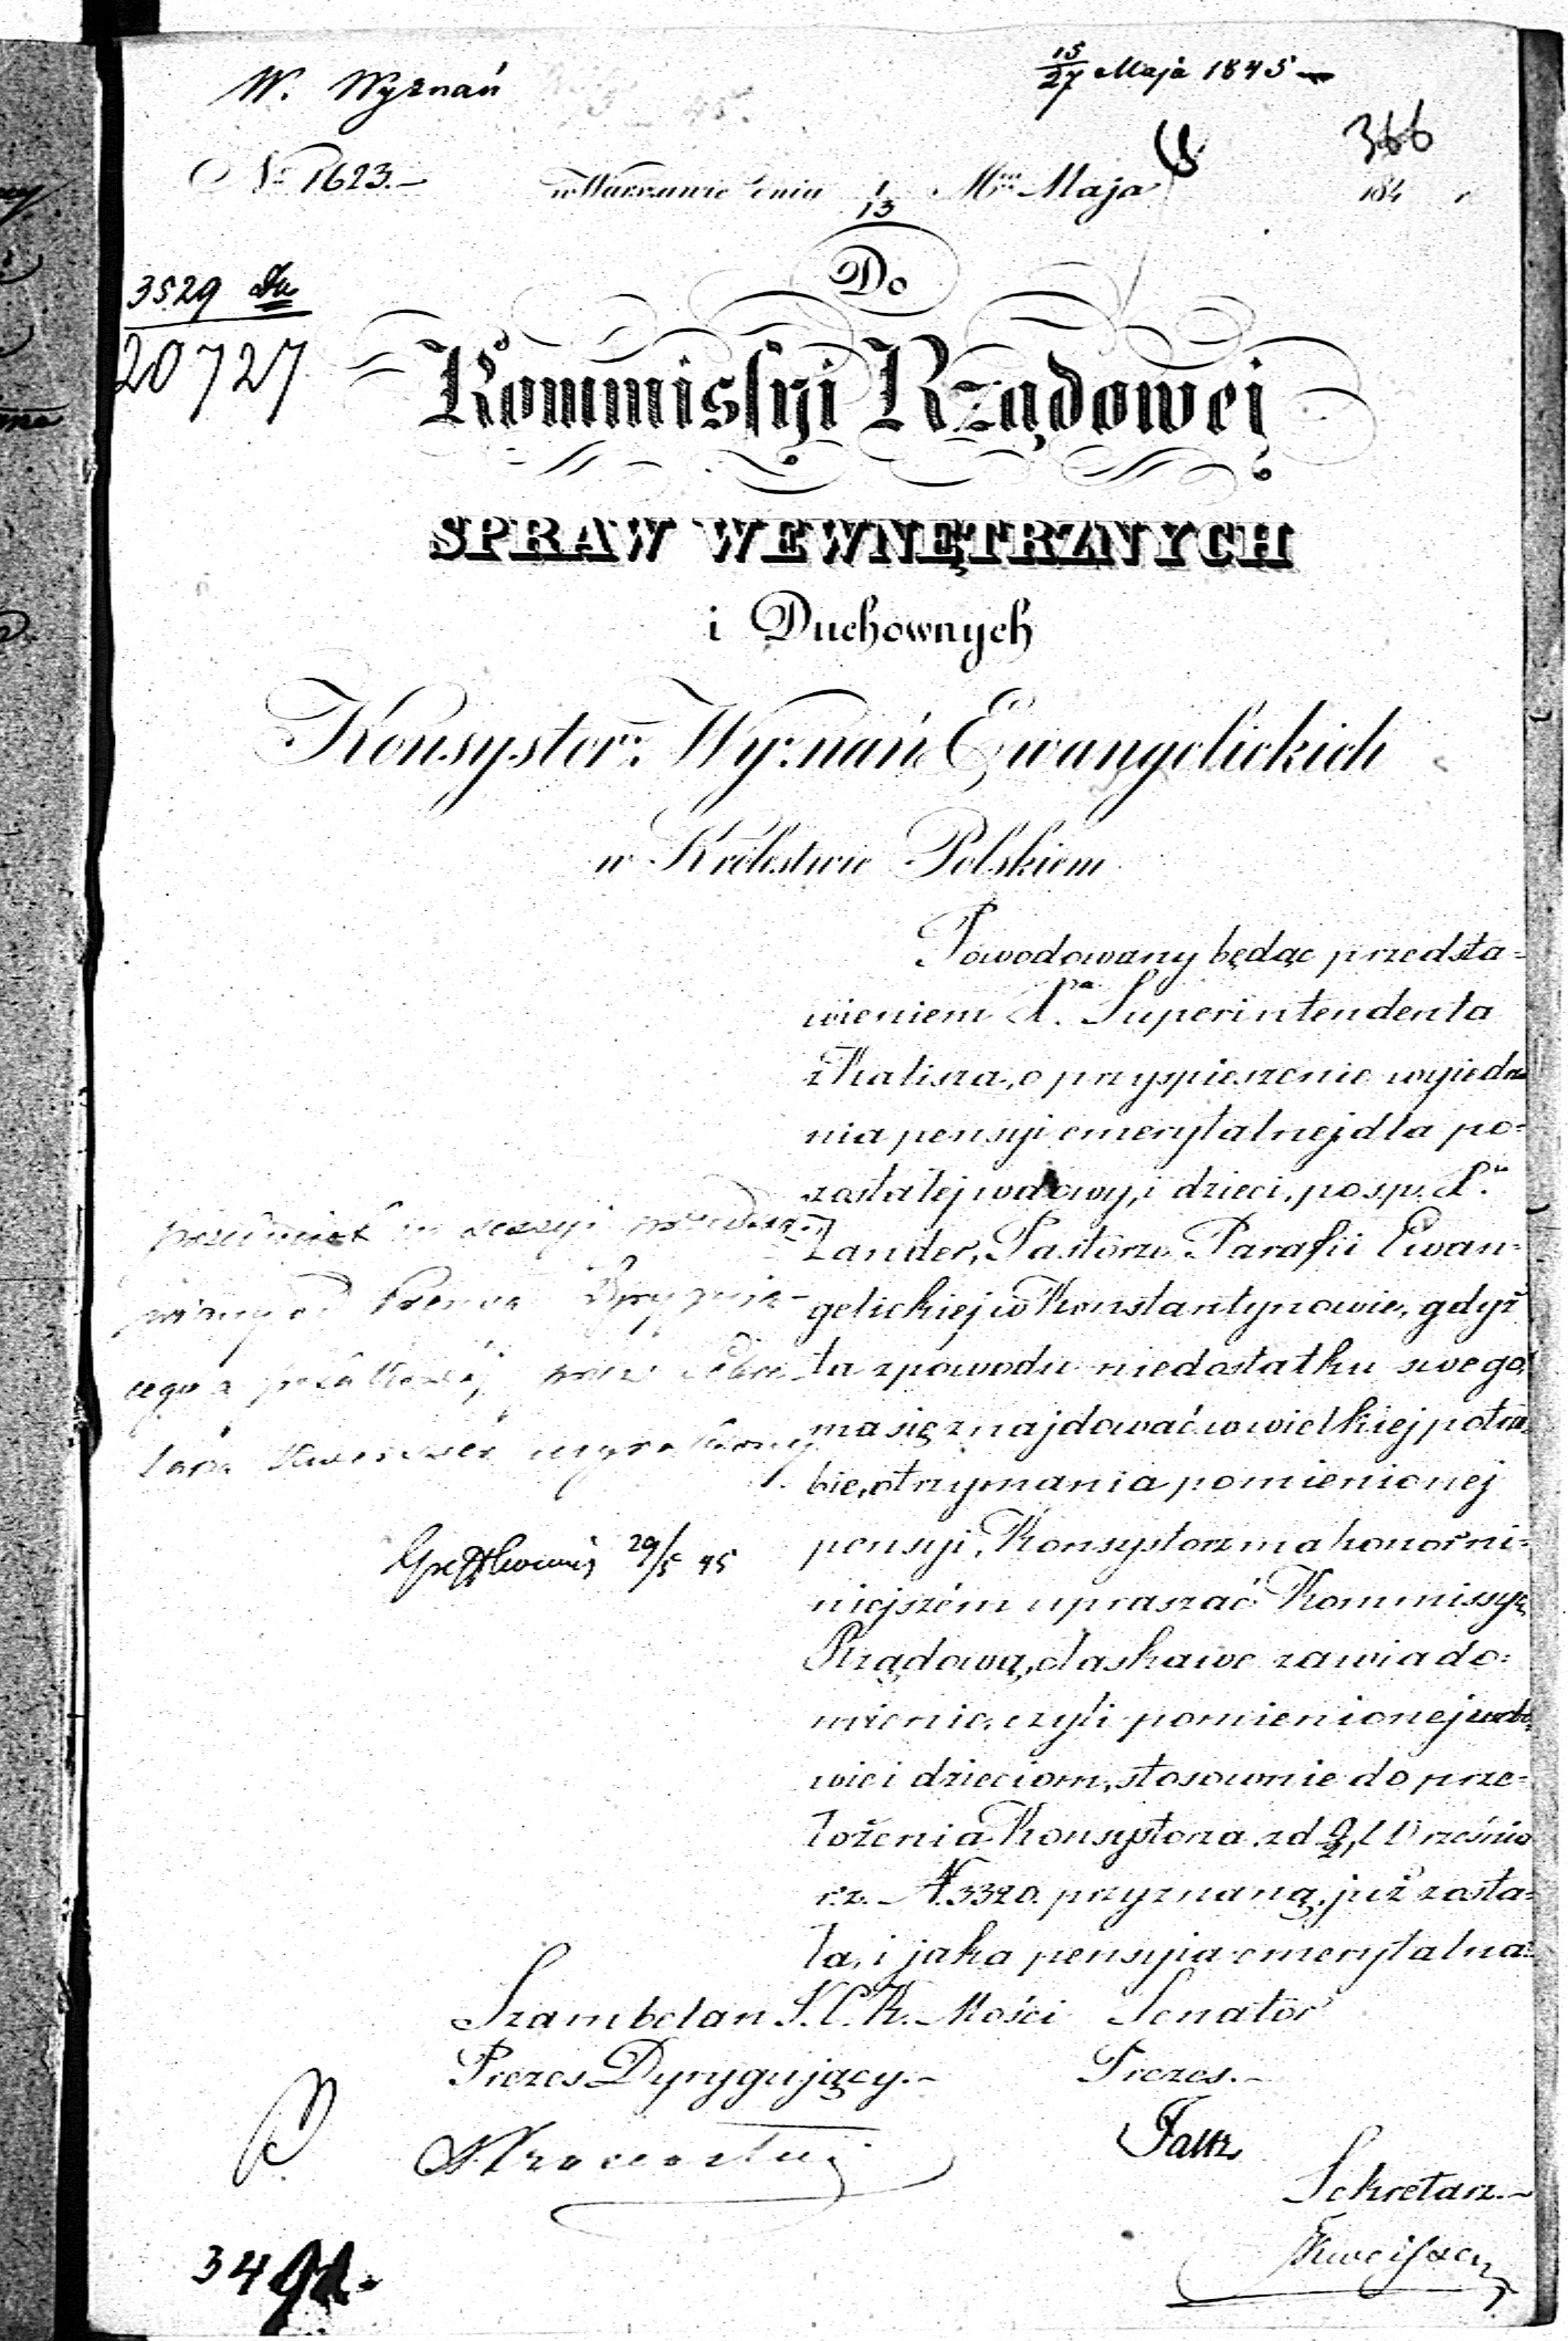 W. Wyznań
15/27 Maja 1845
366
No 1623.–
w Warszawie dnia 1/13 Mca Maja 184 r
3529
20727
Do
Kommissyi Rządowej
SPRAW WEWNĘTRZNYCH
i Duchownych
Konsystorz Wyznań Ewangelickich
w Królestwie Polskiem
Powodowany będąc przedsta=
wieniem Superintendenta
z Kalisza, o przyspieszenie wyjedna
nia pensyi emerytalnej dla po=
zostałej wdowy, i dzieci, po sp. X.
Zander, Pastorze Parafii Ewan=
gelickiej w Konstantynowie, gdyż
ta z powodu niedostatku swego,
ma się znajdować w wielkiej potrze
bie, otrzymania pomienionej
pensyi, Konsystorz ma honor ni=
niejszém upraszać Kommissyę
Rządową, o łaskawe zawiado=
mienie, czyli pomienionej wdo
wie i dzieciom, stosownie do prze=
łożenia Konsystorza z d. Września
r.z. N. 3320. przyznaną już zosta=
ła, i jaka pensyia emerytalna.
przedmiot
29/5 45
Szambelan J.C.K. Mości Senator
Prezes Dyrygujący.– Prezes.–
Sekretarz.–